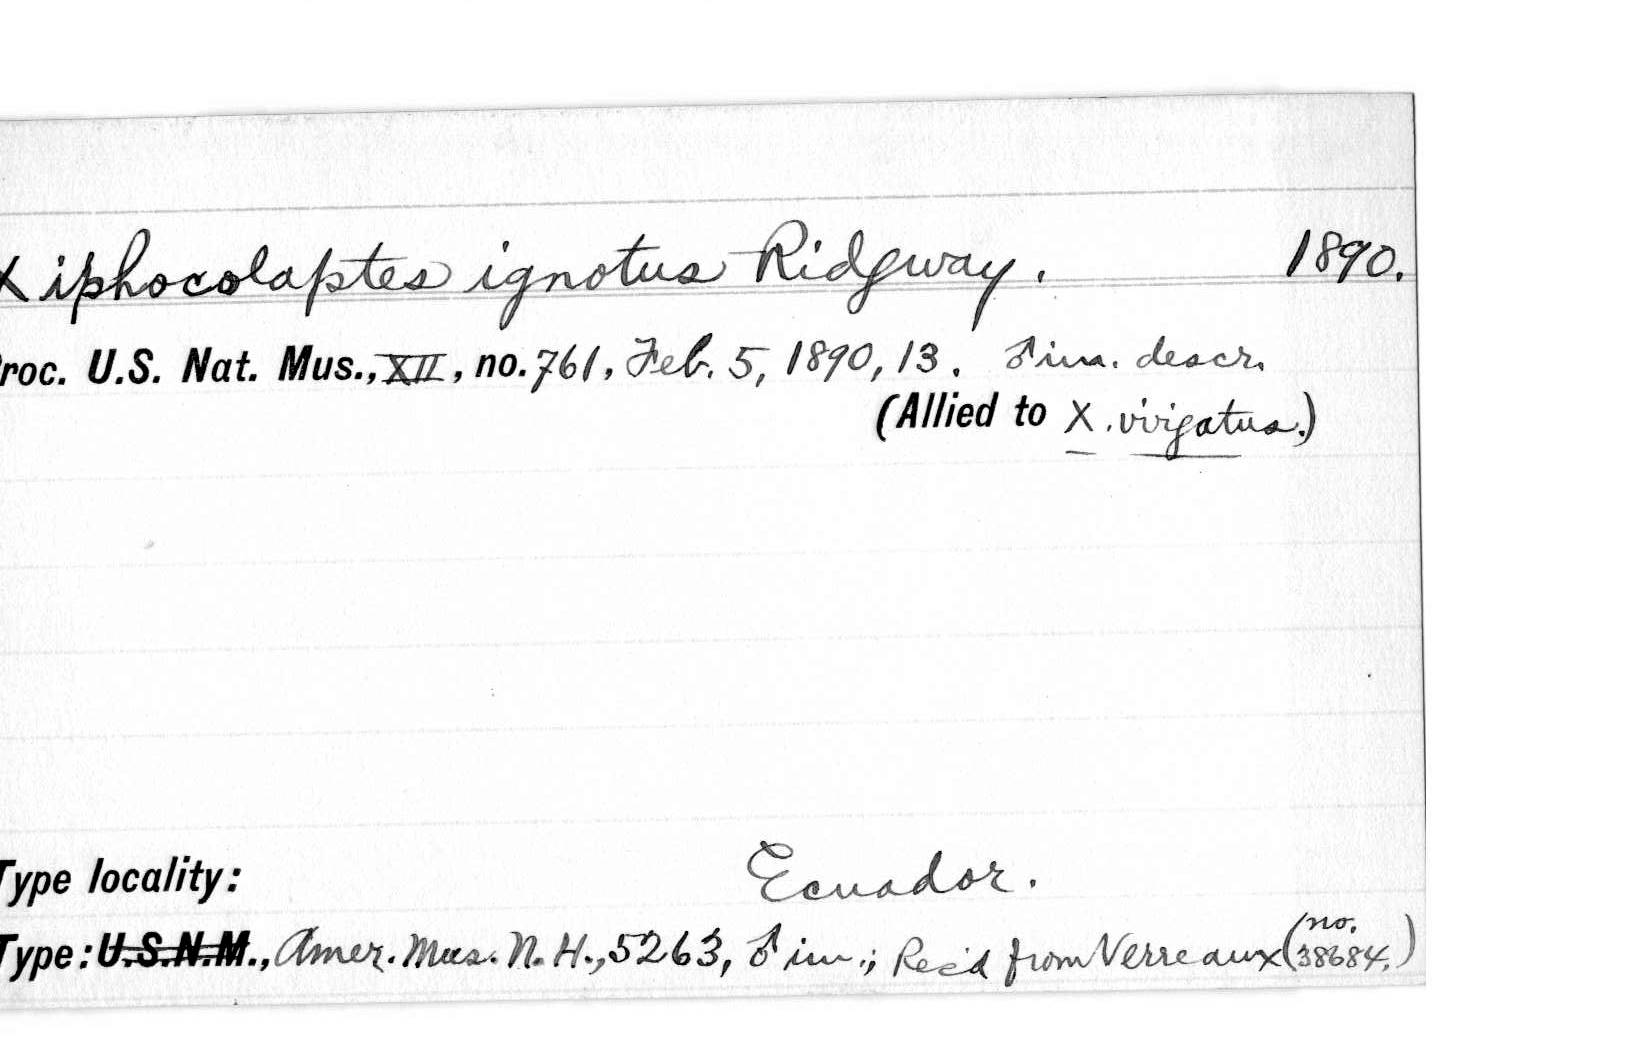 Xiphocolaptes ignotus Ridgway. 1890.
roc. U.S. Nat. Mus., XII, no. 761, Feb. 5, 1890, 13. ♂ im. descr.
(Allied to X. virgatus.)
Type locality: Ecuador.
Type: U.S.N.M., Amer. Mus. N. H., 5263, ♂ im.; Rec'd from Verreaux (no. 38684.)